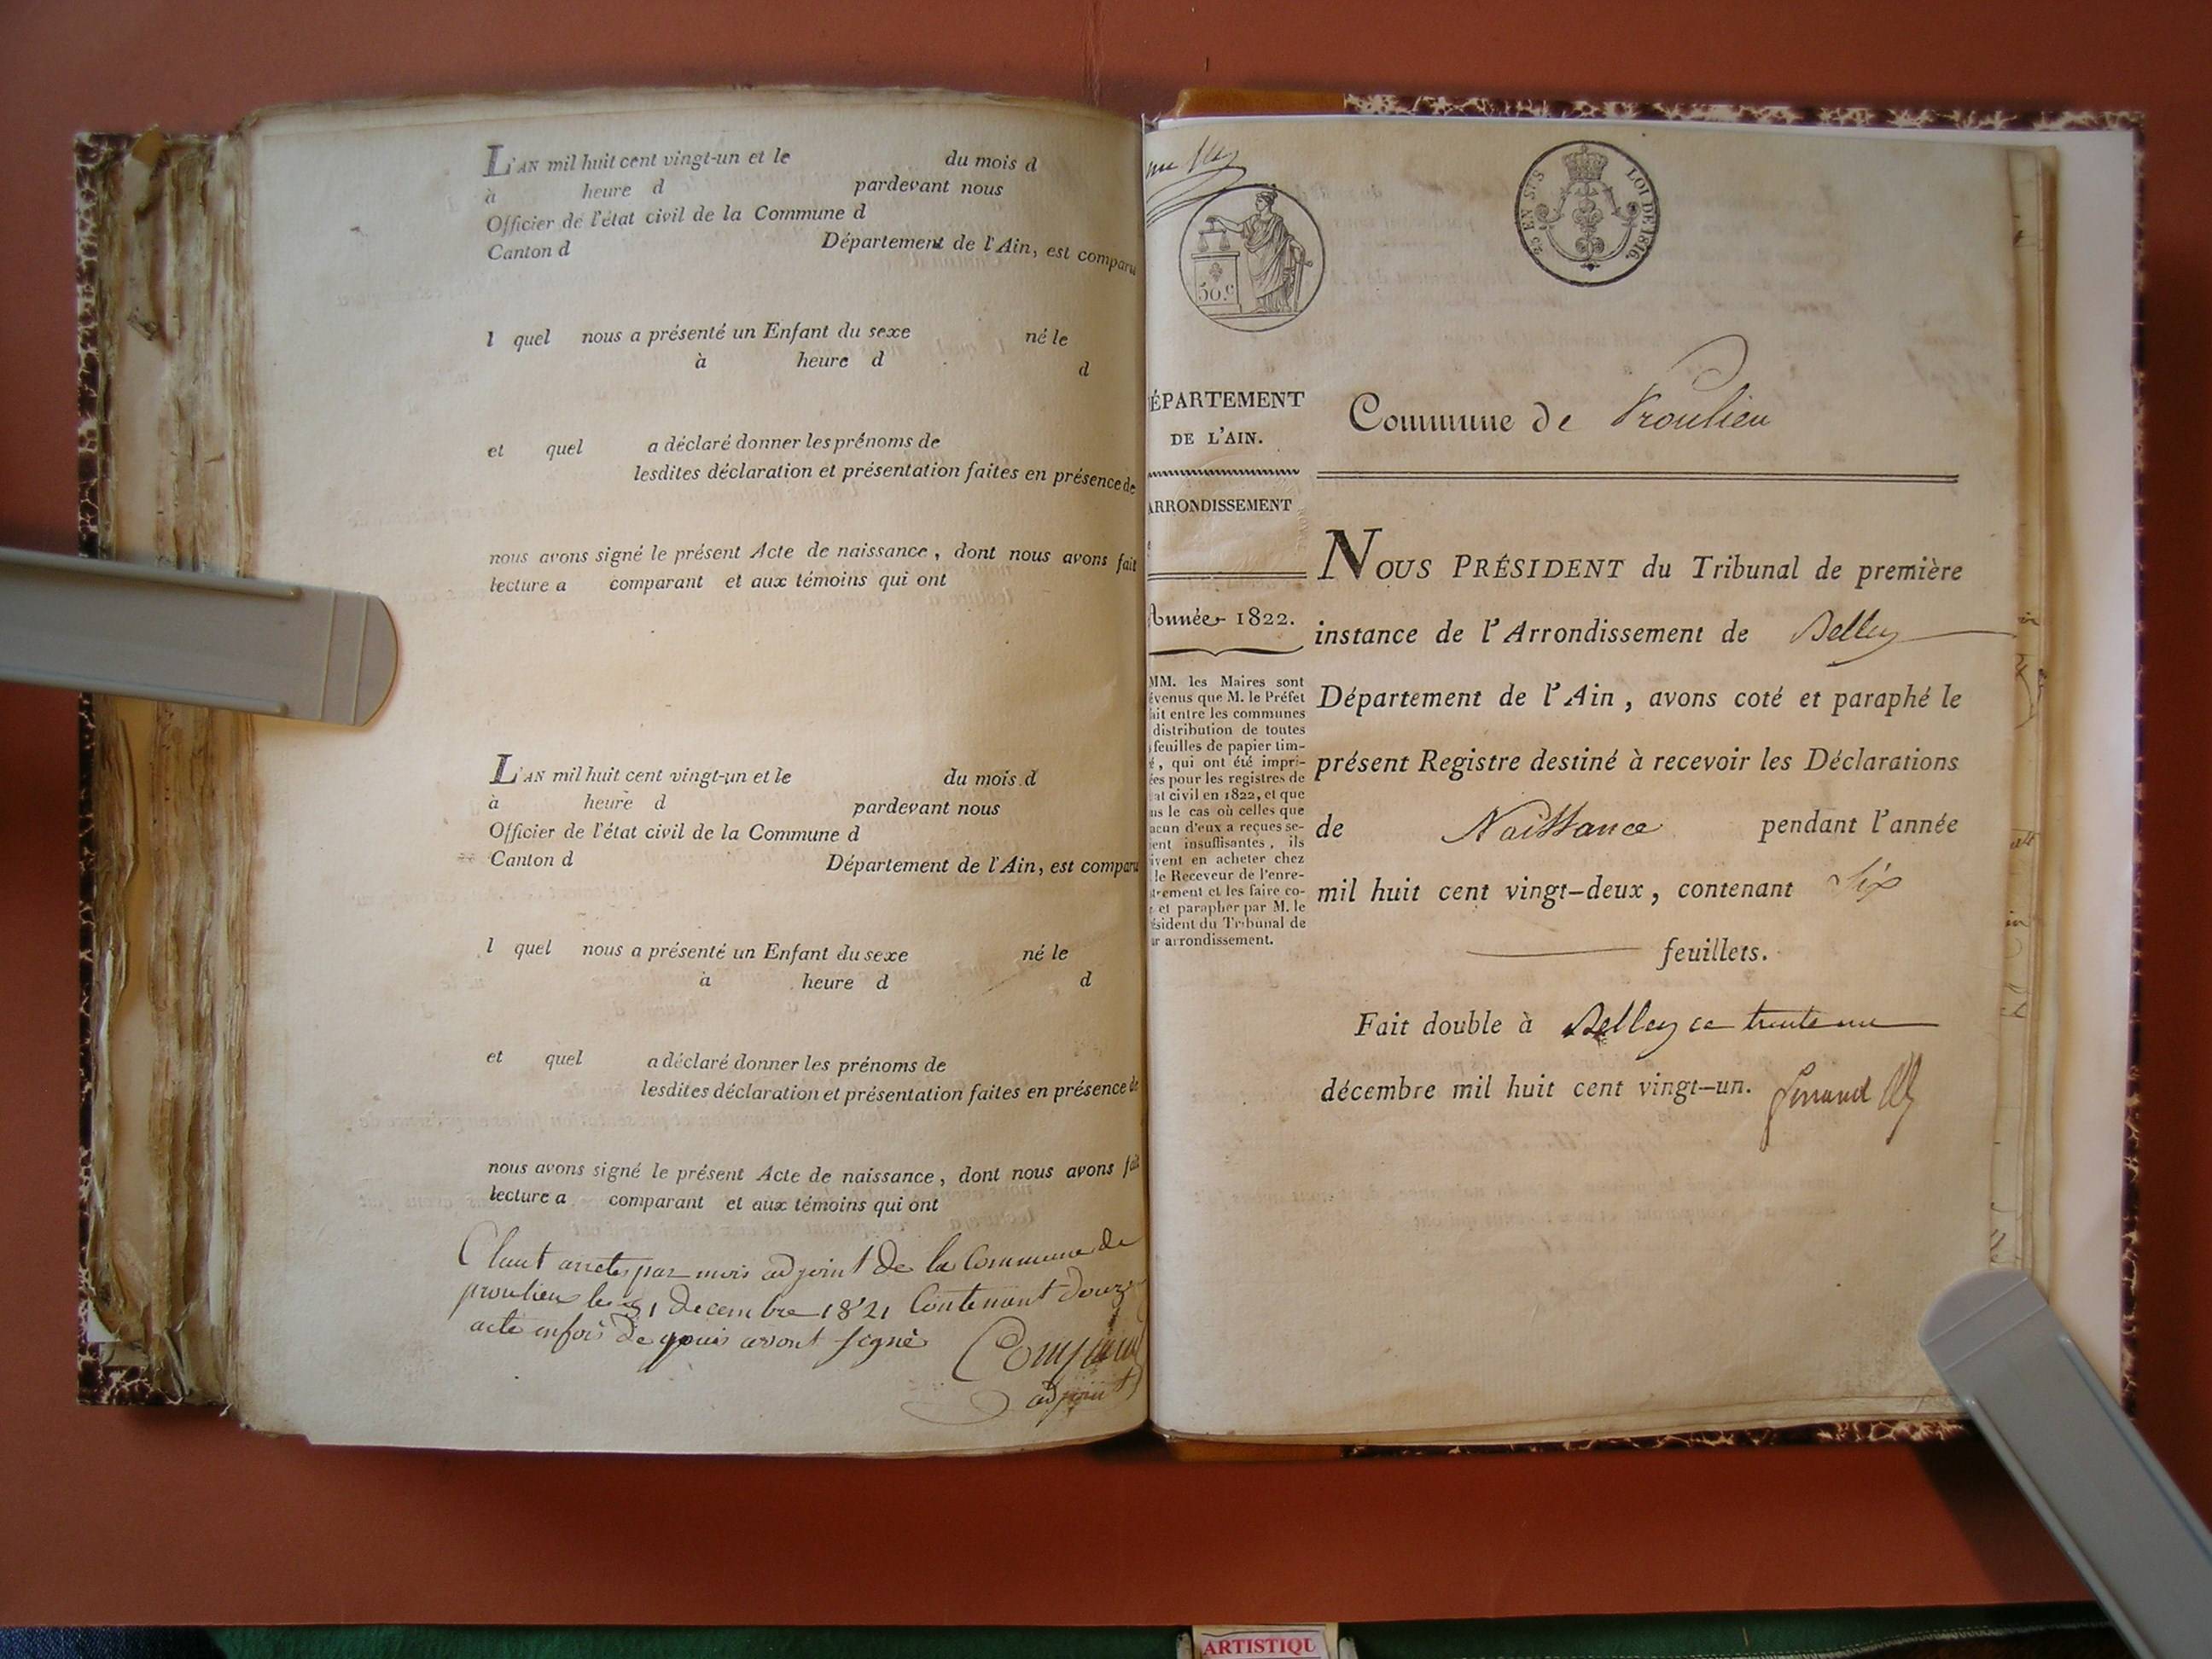 L'AN mil huit cent vingt-un et le du mois d
à heure d pardevant nous
Officier de l'état civil de la Commune d
Canton d Département de l'Ain, est comparu
l quel nous a présenté un Enfant du sexe né le
à heure d d
et quel a déclaré donner les prénoms de
lesdites déclaration et présentation faites en présence de
nous avons signé le présent Acte de naissance, dont nous avons fait
lecture a comparant et aux témoins qui ont
L'AN mil huit cent vingt-un et le du mois d
à heure d pardevant nous
Officier de l'état civil de la Commune d
Canton d Département de l'Ain, est comparu
l quel nous a présenté un Enfant du sexe né le
à heure d d
et quel a déclaré donner les prénoms de
lesdites déclaration et présentation faites en présence de
nous avons signé le présent Acte de naissance, dont nous avons fait
lecture a comparant et aux témoins qui ont
Claut arretes par mois adjoint de la Commune de
proulieu le 31 decembre 1821 Contenant douze
acte enfois de
adjoint
50.c
25 EN SUS LOI DE 1816.
ÉPARTEMENT
DE L'AIN.
ARRONDISSEMENT
Année 1822.
MM. les Maires sont
évenus que M. le Préfet
ait entre les communes
distribution de toutes
feuilles de papier tim-
é, qui ont été impri-
ées pour les registres de
at civil en 1822, et que
ns le cas où celles que
acun d'eux a reçues se-
ient insuffisantes, ils
ivent en acheter chez
le Receveur de l'enre-
trement et les faire co-
r et parapher par M. le
ésident du Tribunal de
ur arrondissement.
Commune de Proulieu
NOUS PRÉSIDENT du Tribunal de première
instance de l'Arrondissement de Belley
Département de l'Ain, avons coté et paraphé le
présent Registre destiné à recevoir les Déclarations
de Naissance pendant l'année
mil huit cent vingt-deux, contenant Six
feuillets.
Fait double à Belley ce trente un
décembre mil huit cent vingt-un.
ARTISTIQU